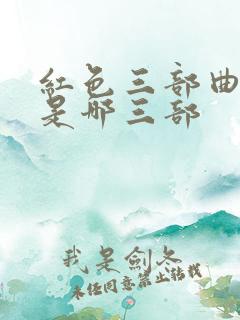 紅色三部曲
是哪三部
我是劍冬
未经同意禁止转载